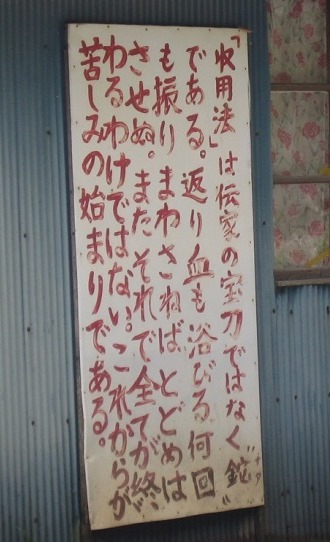 「収用法」は伝家の宝刀ではなく“鉈”ナタ
である。返り血も浴びる何回
も振りまわさねばとどめは
させぬ。またそれで全てが終
わるわけではない。これからが
苦しみの始まりである。